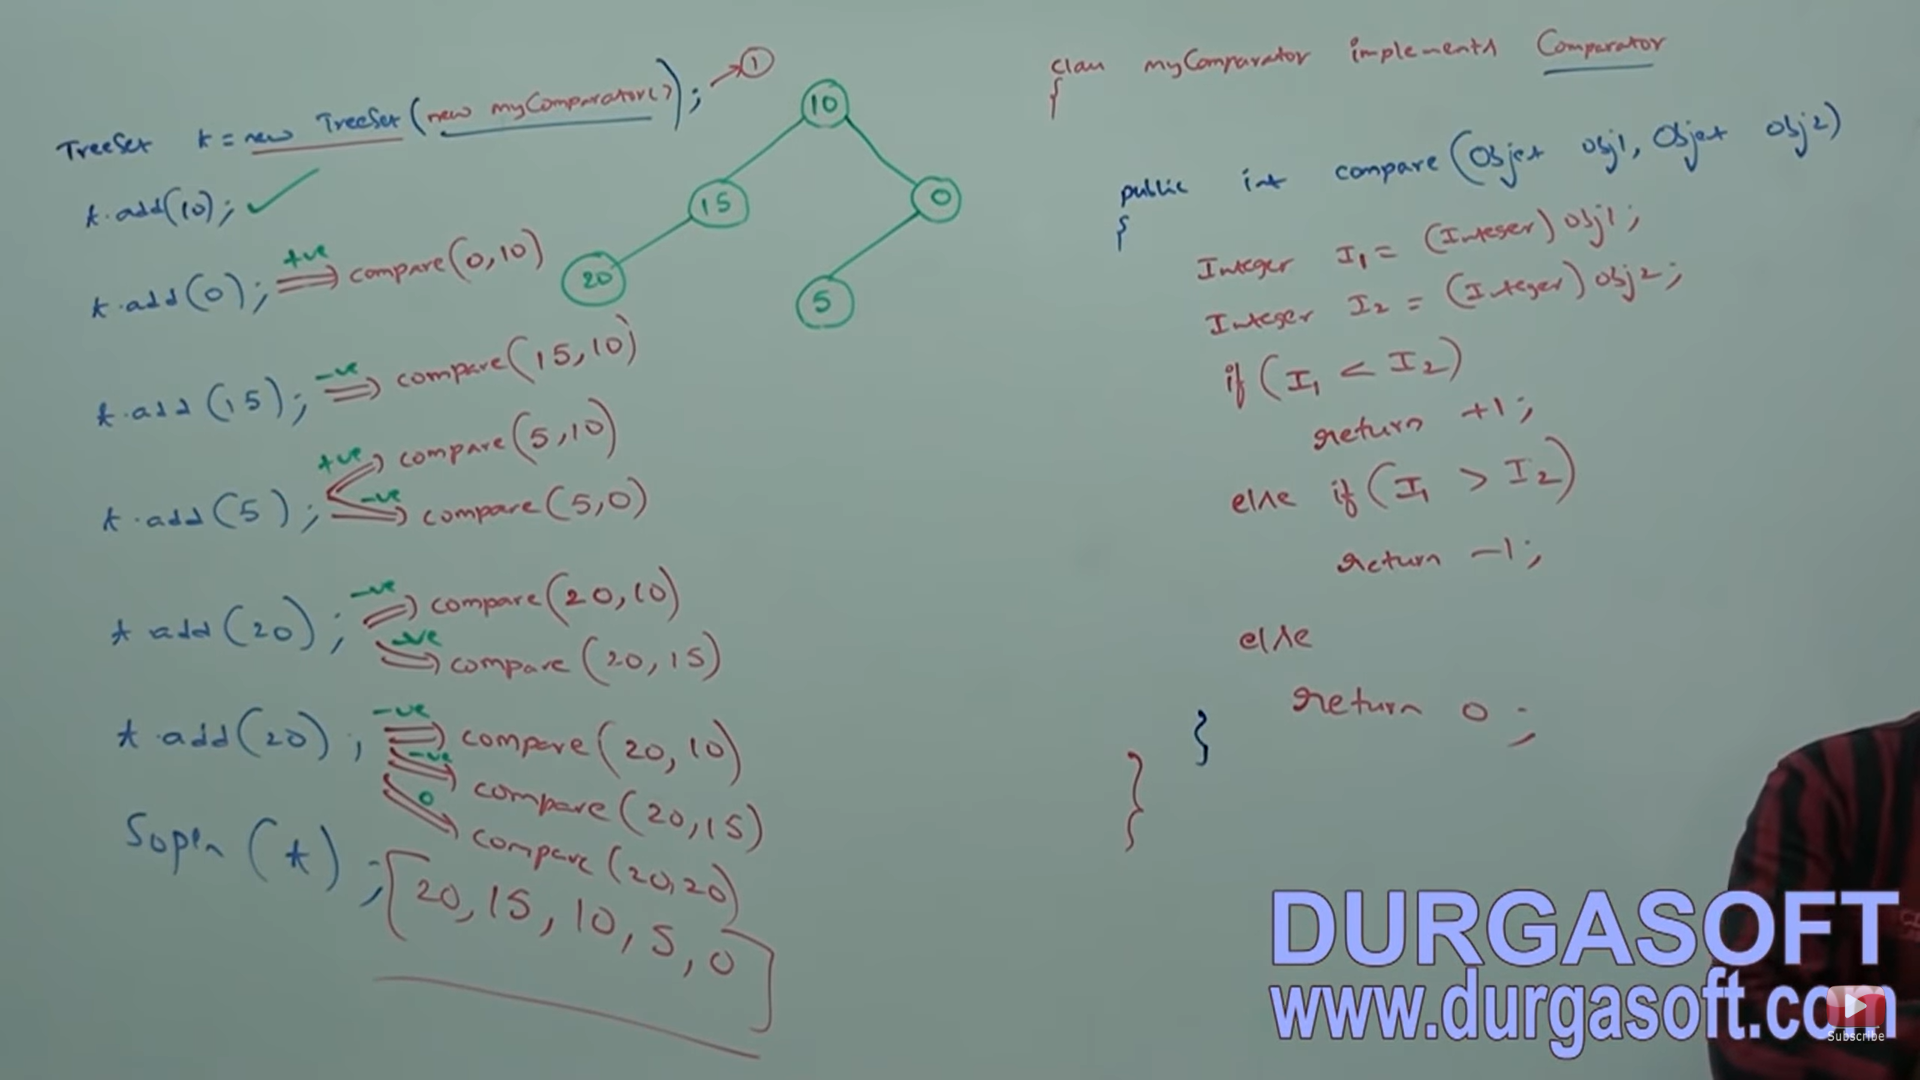 TreeSet t = new TreeSet(new myComparator()); → 1
t.add(10); ✓
t.add(0); +ve ⇒ compare(0,10)
t.add(15); -ve ⇒ compare(15,10)
t.add(5); +ve ⇒ compare(5,10)
-ve ⇒ compare(5,0)
t add(20); -ve ⇒ compare(20,10)
-ve ⇒ compare(20,15)
t.add(20); -ve ⇒ compare(20,10)
-ve ⇒ compare(20,15)
0 ⇒ compare(20,20)
Sopln(t); [20,15,10,5,0]
10
15 0
20 5
class myComparator implements Comparator
{
public int compare(Object obj1, Object obj2)
{
Integer I1 = (Integer)obj1;
Integer I2 = (Integer)obj2;
if(I1 < I2)
return +1;
else if(I1 > I2)
return -1;
else
return 0;
}
}
DURGASOFT
www.durgasoft.com
Subscribe